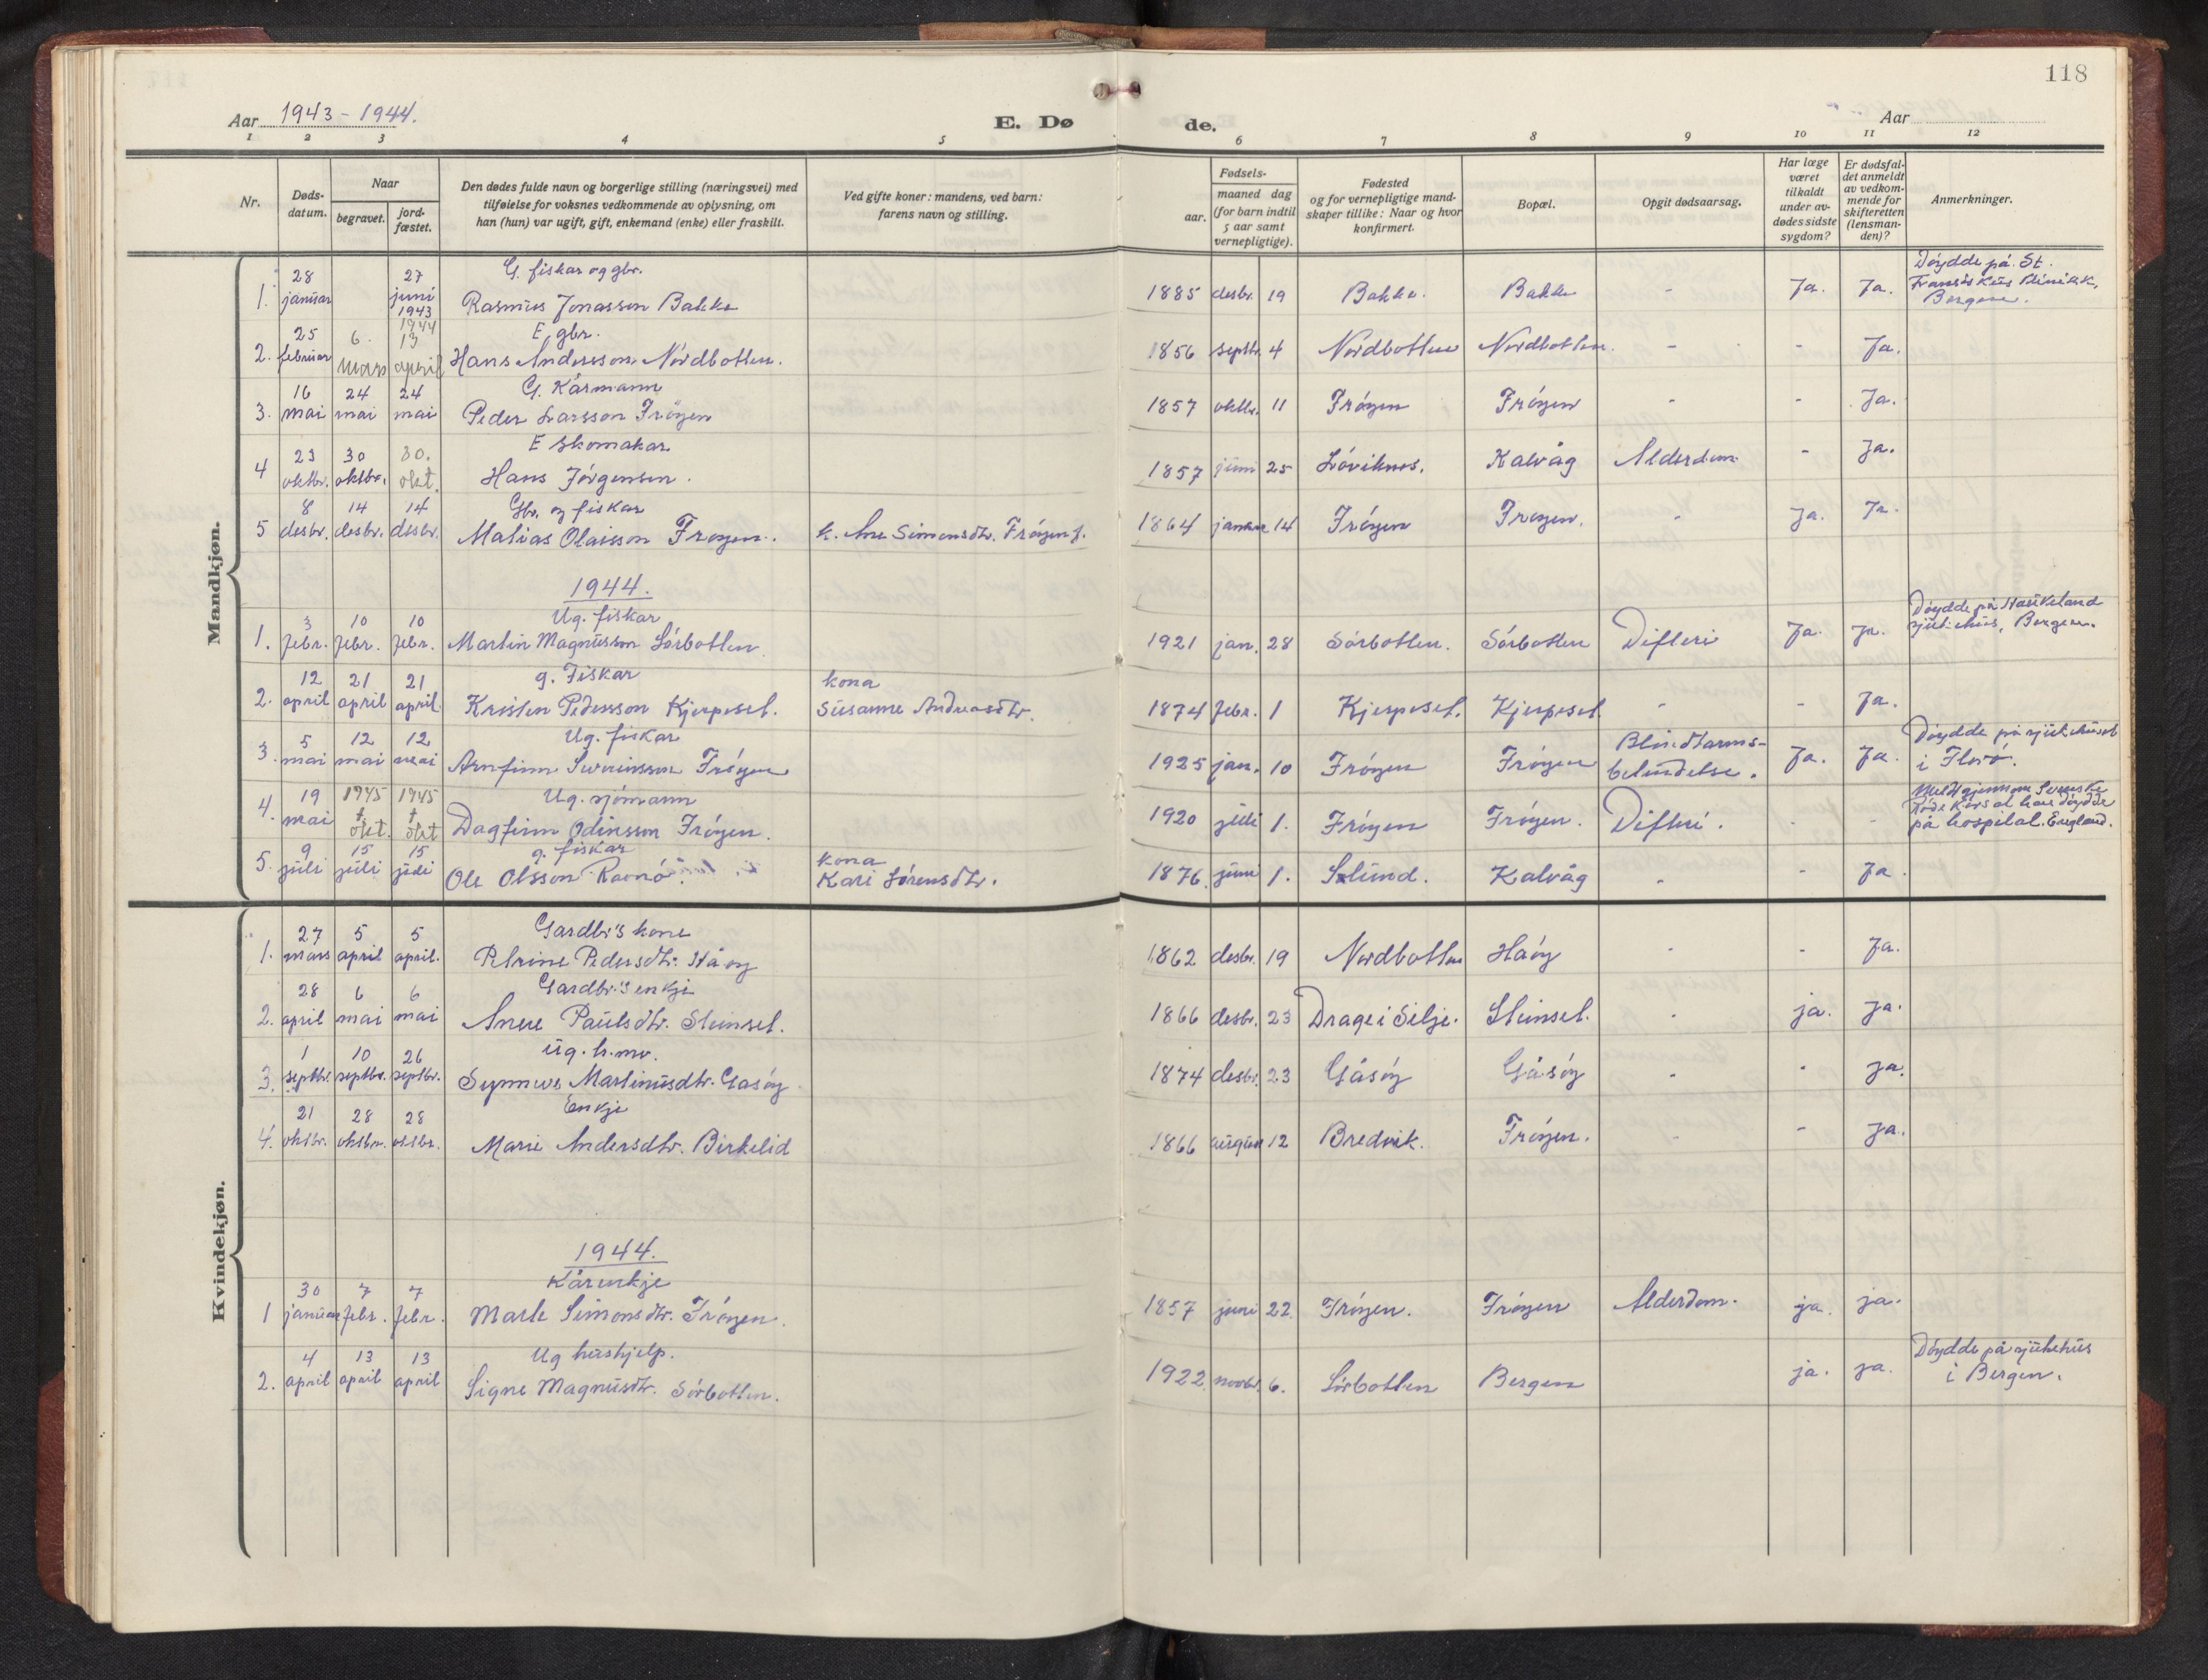 118
Aar 1943 - 1944.
E. Dø
de.
Aar
1 2 3 4 5 6 7 8 9 10 11 12
Nr.
Døds-
datum.
Naar
begravet.
jord-
fæstet.
Den dødes fulde navn og borgerlige stilling (næringsvei) med
tilføielse for voksnes vedkommende av oplysning, om
han (hun) var ugift, gift, enkemand (enke) eller fraskilt.
Ved gifte koner: mandens, ved barn:
farens navn og stilling.
Fødsels-
aar.
maaned dag
(for barn indtil
5 aar samt
vernepligtige).
Fødested
og for vernepligtige mand-
skaper tillike: Naar og hvor
konfirmert.
Bopæl.
Opgit dødsaarsag.
Har læge
været
tilkaldt
under av-
dødes sidste
sygdom?
Er dødsfal-
det anmeldt
av vedkom-
mende for
skifteretten
(lensman-
den)?
Anmerkninger.
Mandkjøn.
28 27 G. fiskar og gbr. Døydde på St.
1. januar juni 1943 Rasmus Jonasson Bakke 1885 desbr. 19 Bakke. Bakke - Ja. Ja. Bergen.
25 6. 1944 13 E, gbr.
2. februar mars april Hans Andersson Nordbotten. 1856 septbr. 4 Nordbotten Nordbotten. - - Ja.
16 24 24 G. Kårmann
3. mai mai mai Peder Larsson Frøyen 1857 oktbr. 11 Frøyen Frøyen - - Ja.
23 30 30. E skomakar
4 oktbr. oktbr. okt. Hans Jørgensen. 1857 juni 25 Løviknes. Kalvåg Alderdom - Ja.
8 14 14 Gbr. og fiskar
5 desbr. desbr. desbr. Matias Olaisson Frøyen. k. Ane Simonsdtr. Frøyen f. 1864 januar 14 Frøyen Frøyen. - Ja. Ja.
1944.
3 10 10 Ug. fiskar Døydde på Haukeland
1. febr. febr. febr. Martin Magnusson Sørbotten 1921 jan. 28 Sørbotten. Sørbotten Difteri Ja. Ja. sjukehus, Bergen.
12 21 21 g. Fiskar kona
2. april april april. Kristen Pedersson Kjerpeset. Susanne Andreasdtr. 1874 febr. 1 Kjerpeset. Kjerpeset - - Ja.
5 12 12 Ug. fiskar Blindtarms- Døydde på sjukehuset
3. mai mai mai Arnfinn Sveinsson Frøyen 1925 jan. 10 Frøyen Frøyen betendelse. Ja. Ja. i Florø.
19 1945 1945 Ug. sjømann Meldt gjennom Svenske
4. mai okt. okt Dagfinn Odinsson Frøyen. 1920 juli 1. Frøyen Frøyen. Difteri. - - Røde Kors at han døydde
på hospital. England.
9 15 15 g. fiskar kona
5. juli juli juli Ole Olsson Ramø. Kari Sørensdtr. 1876. juni 1. Kalvåg - - Ja.
Kvindekjøn.
27 5 5 Gardbr's kone
1. mars april april. Petrine Pedersdtr. Håøy 1862 desbr. 19 Nordbotten Håøy - - Ja.
28 6 6 Gardbr.'s enkje
2. april mai mai Anne Paulsdtr. Steinset. 1866 desbr. 23 Drage i Selje. Steinset. - ja. ja.
1 10 26 ug. h. mo.
3. septbr. septbr. septbr. Synneve Martinusdtr. Gåsøy. 1874 desbr. 23 Gåsøy Gåsøy - - ja.
21 28 28 Enkje
4. oktbr. oktbr. oktbr. Marie Andersdtr. Birkelid 1866 august 12 Bredvik. Frøyen. - - ja.
1944.
30 7 7 Kårenkje
1 januar febr. febr. Marte Simonsdtr. Frøyen. 1857 juni 22. Frøyen. Frøyen Alderdom. ja. ja.
4 13 13 Ug hushjelp. Døydde på sjukehus
2. april april april Signe Magnusdtr. Sørbotten. 1922. novbr. 6. Sørbotten Bergen ja. ja. i Bergen.